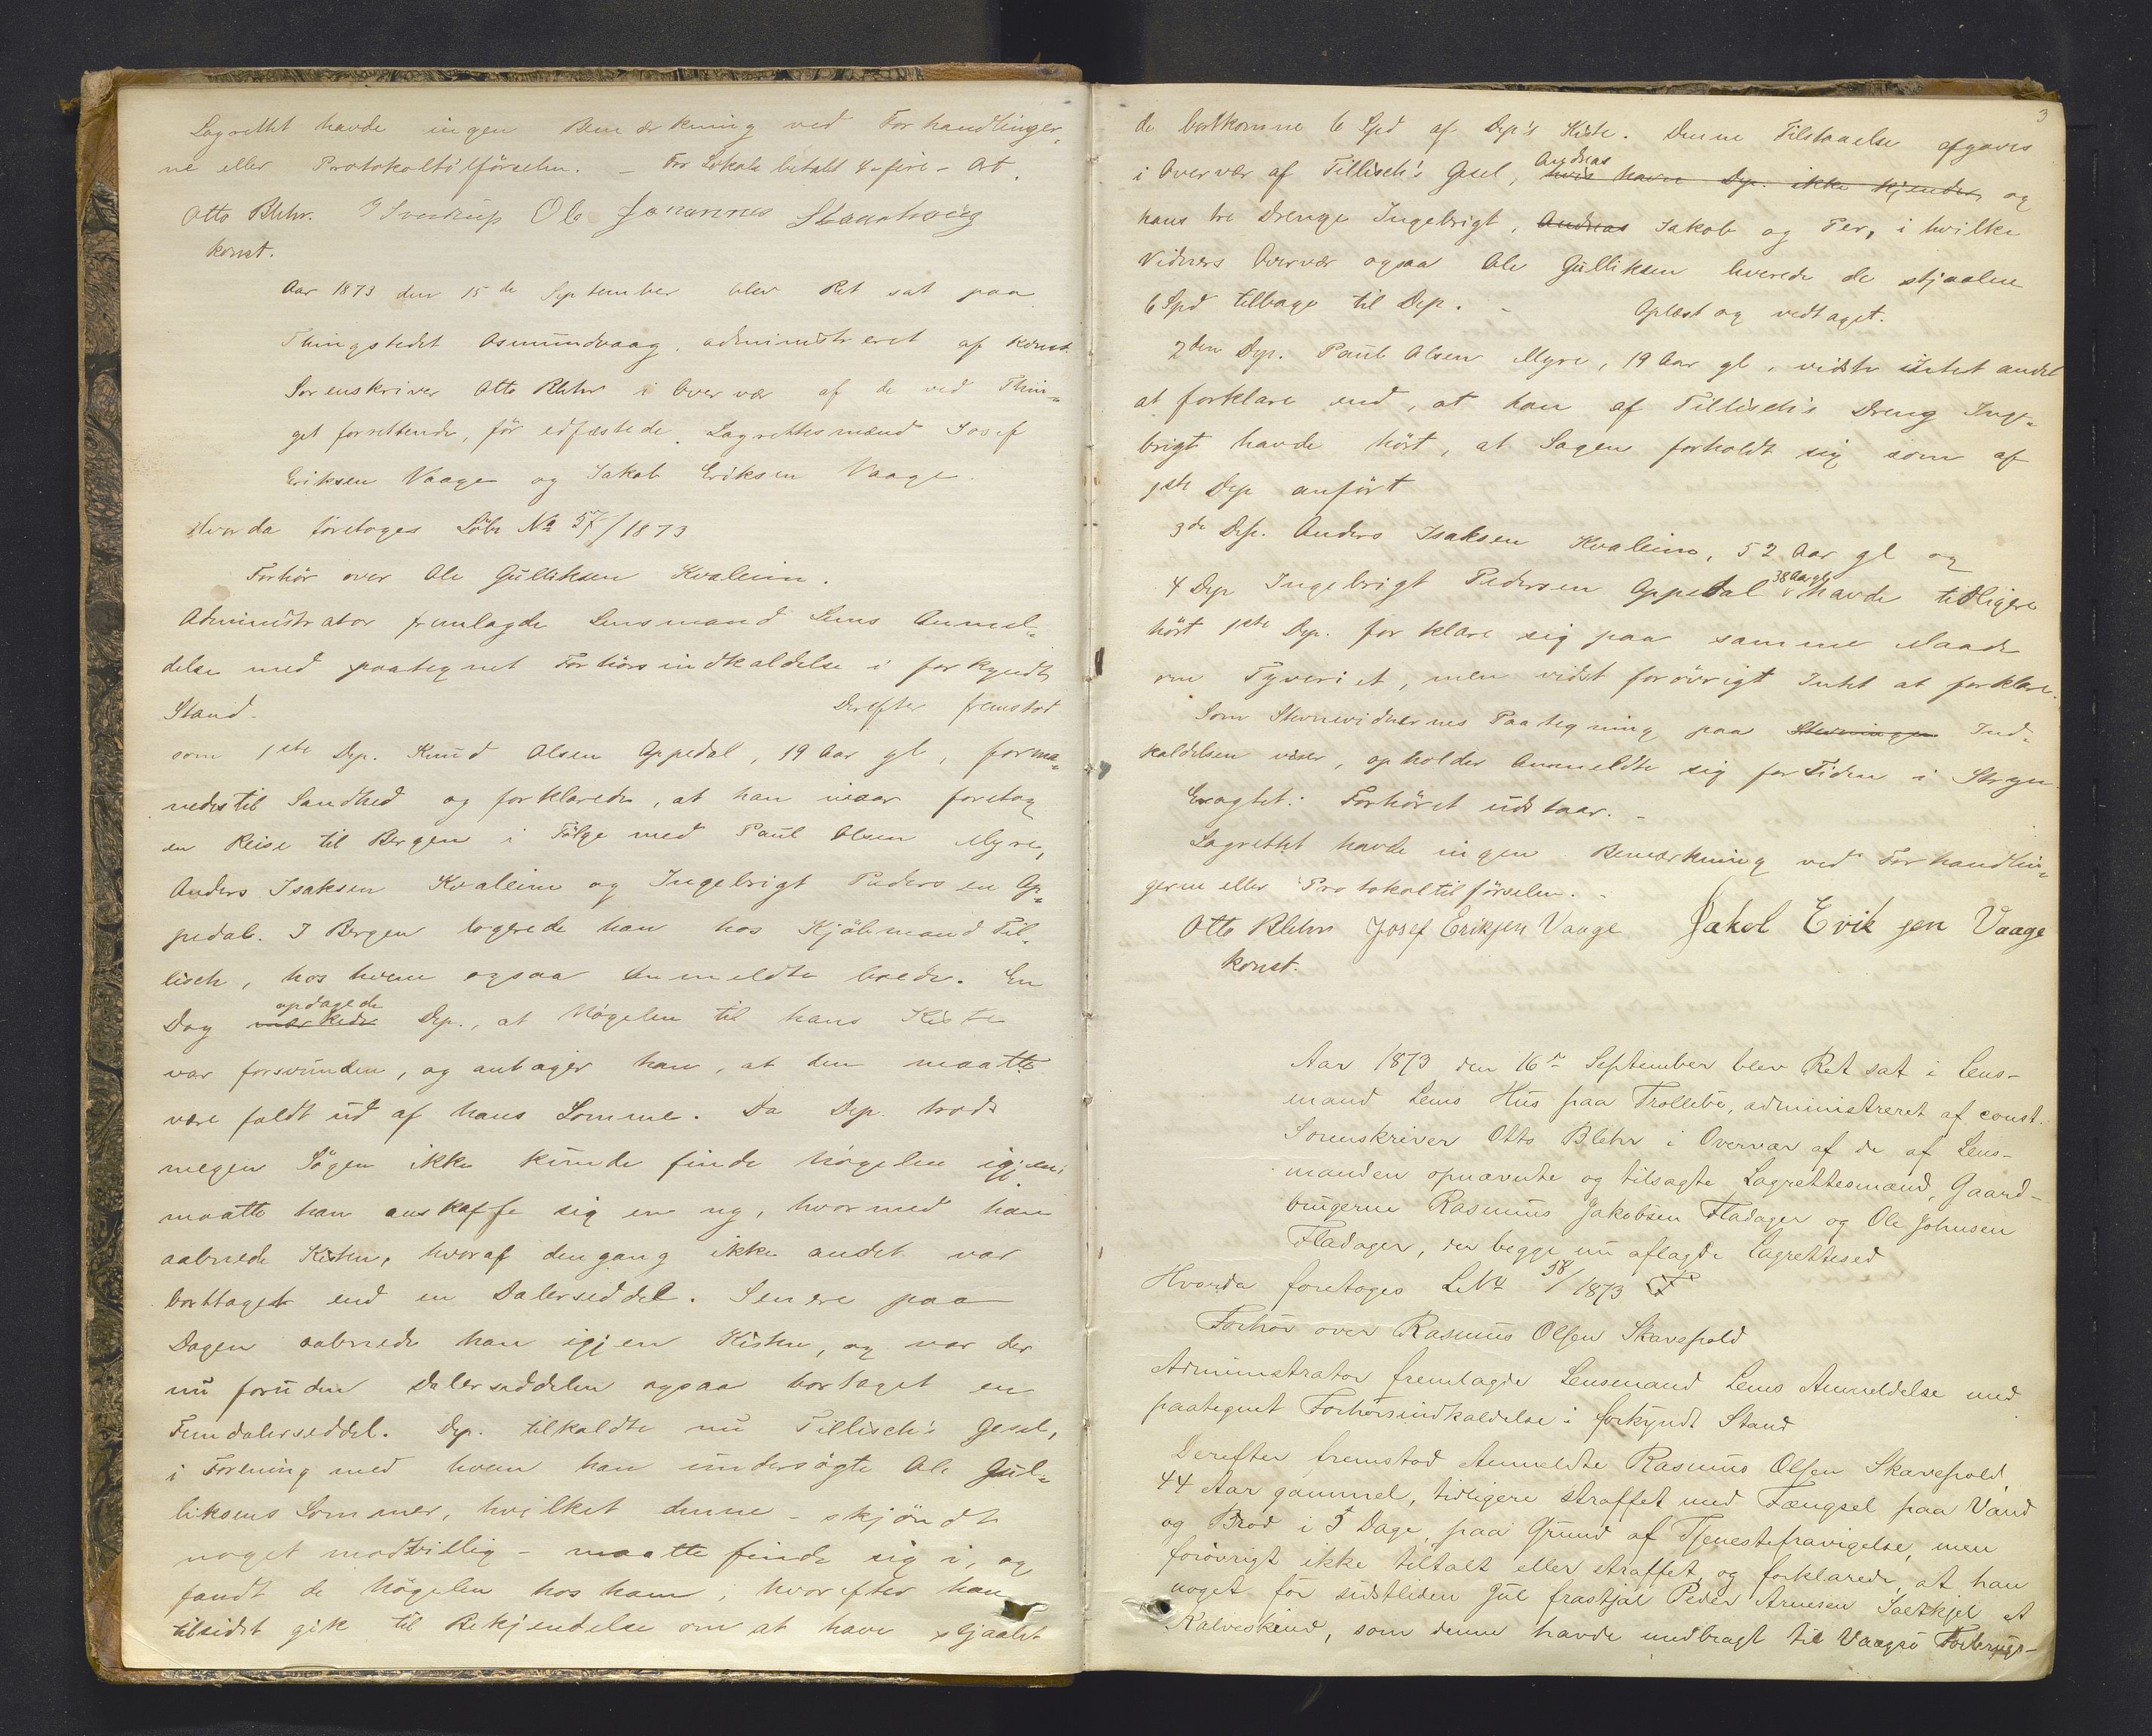 Lagrettet havde ingen Bemærkning ved Forhandlinger-
ne eller Protokoltilførselen. – For Lokale betalt 4 – fire – Ort.
Otto Blehr. Ole Johannes
konst.
Aar 1873 den 15de September blev Ret sat paa
Thingstedet Osmundvaag, administreret af konst.
Sorenskriver Otto Blehr i Overvær af de ved Thin-
get forrettende, før edfæstede Lagrettesmænd Josef
Eriksen Vaage og Jakob Eriksen Vaage.
Hvorda foretoges Løbe No 57/1873
Forhør over Ole Gulliksen Kvaleim.
Administrator fremlagde Lensmand Lems Anmel-
delse med paategnet Forhørsindkaldelse i forkyndt
Stand. Derefter fremstod
som 1ste Dep. Knud Olsen Oppedal, 19 Aar gl, forma-
nedes til Sandhed og forklarede, at han ivaar foretog
en Reise til Bergen i Følge med Paul Olsen Myre,
Anders Isaksen Kvaleim og Ingebrigt Pedersen Op-
pedal. I Bergen logerede han hos Kjøbmand Til-
lisch, hos hvem ogsaa Anmeldte boede. En
opdagede
Dag mærkede Dep., at Nøgelen til hans Kiste
var forsvunden, og antager han, at den maatte
være faldt ud af hans Lomme. Da Dep. trods
megen Søgen ikke kunde finde Nøgelen igjen,
maatte han anskaffe sig en ny, hvormed han
aabnede Kisten, hvoraf dengang ikke andet var
borttaget end en Dalerseddel. Senere paa
Dagen aabnede han igjen Kisten, og var der
nu foruden Dalerseddelen ogsaa bortaget en
Femdalerseddel. Dep. tilkaldte nu Tillisch's Gesel,
i Forening med hvem han undersøgte Ole Gul-
liksens Lommer, hvilket denne – skjøndt
noget modvillig – maatte finde sig i, og
fandt de Nøgelen hos ham, hvorefter han
tilsidst gik til Bekjendelse om at have stjaalet
3
de bortkomne 6 Spd af Dep's Kiste. Denne Tilstaaelse afgaves
Andreas
i Overvær af Tillisch's Gesel, hvis Navn Dep. ikke kjender, og
hans tre Drenge Ingebrigt, Andreas Jakob og Per, i hvilke
Vidners Overvær ogsaa Ole Gulliksen leverede de stjaalne
6 Spd tilbage til Dep. – Oplæst og vedtaget.
2den Dep. Paul Olsen Myre, 19 Aar gl, vidste intet andet
at forklare end, at han af Tillisch's Dreng Inge-
brigt havde hørt, at Sagen forholdt sig som af
1ste Dep anført
3de Dep. Anders Isaksen Kvaleim, 52 Aar gl og
38 Aar gl
4 Dep Ingebrigt Pedersen Oppedal havde tidligere
hørt 1ste Dep. forklare sig paa samme Maade
om Tyveriet, men vidst forøvrigt Intet at forklare.
Som Stevnevidnernes Paategning paa Stevningen Ind-
kaldelsen viser, opholder Anmeldte sig for Tiden i Stryn
Eragtet: Forhøret udstaar. –
Lagrettet havde ingen Bemærkning ved Forhandlin-
gerne eller Protokoltilførselen. –
Otto Blehr Josef Eriksen Vaage Jakob Erik sen Vaage
konst.
Aar 1873 den 16de September blev Ret sat i Lens-
mand Lems Hus paa Trollebø, administreret af const.
Sorenskriver Otto Blehr i Overvær af de af Lens-
manden opnævnte og tilsagte Lagrettesmænd, Gaard-
brugerne Rasmus Jakobsen Fladager og Ole Johnsen
Fladager, der begge nu aflagde Lagrettesed
Hvorda foretoges LNo 58/1873 F
Forhør over Rasmus Olsen Skavefold
Administrator fremlagde Lensmand Lems Anmeldelse med
paategnet Forhørsindkaldelse i forkyndt Stand
Derefter fremstod Anmeldte Rasmus Olsen Skavefold,
44 Aar gammel, tidligere straffet med Fængsel paa Vand
og Brød i 5 Dage, paa Grund af Tjenestefravigelse, men
forøvrigt ikke tiltalt eller straffet, og forklarede, at han
noget før sidstleden Jul frastjal Peder Arnesen et
Kalveskind, som denne havde medbragt til Vaagsø